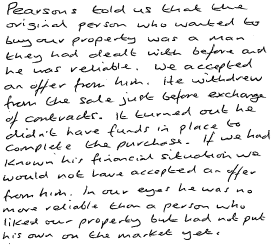 Pearsons told us that the
original person who wanted to
buy our property was a man
they had dealt with before and
he was reliable. We accepted
an offer from him. He withdrew
from the sale just before exchange
of contracts. It turned out he
didn't have funds in place to
complete the purchase. If we had
known his financial situation we
would not have accepted an offer
from him. In our eyes he was no
more reliable than a person who
liked our property but had not put
his own on the market yet.